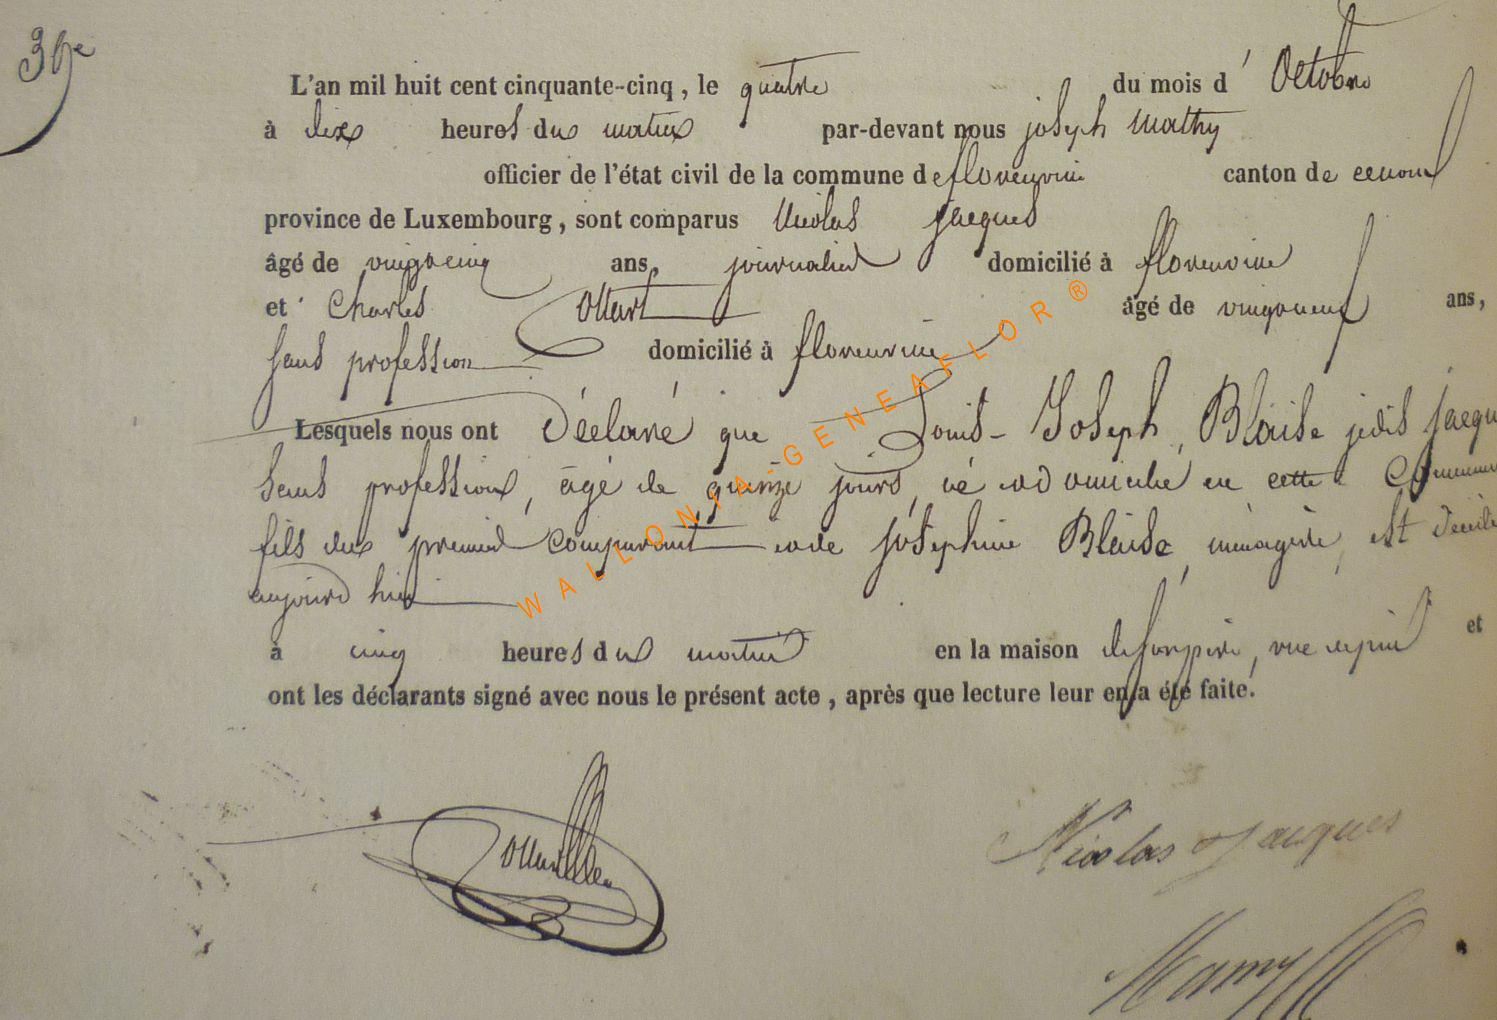 36e
L'an mil huit cent cinquante-cinq, le quatre du mois d'Octobre
à dix heures du matin par-devant nous joseph mathy
officier de l'état civil de la commune de florenville canton de
province de Luxembourg, sont comparus Nicolas jacques
âgé de vingtcinq ans, journalier domicilié à florenville
et Charles âgé de vingtneuf ans,
sans profession domicilié à florenville
Lesquels nous ont Déclaré que Louis-Joseph, Blaise jadis jacqu
sans profession, âgé de quinze jours, né et domicilié en cette Commune
fils du premier comparant et de joséphine Blaise, ménagère, est décédé
aujourd'hui
à cinq heures du matin en la maison de son père, rue et
ont les déclarants signé avec nous le présent acte, après que lecture leur en a été faite.
Nicolas Jacques
WALLONIA-GENEAFLOR ®